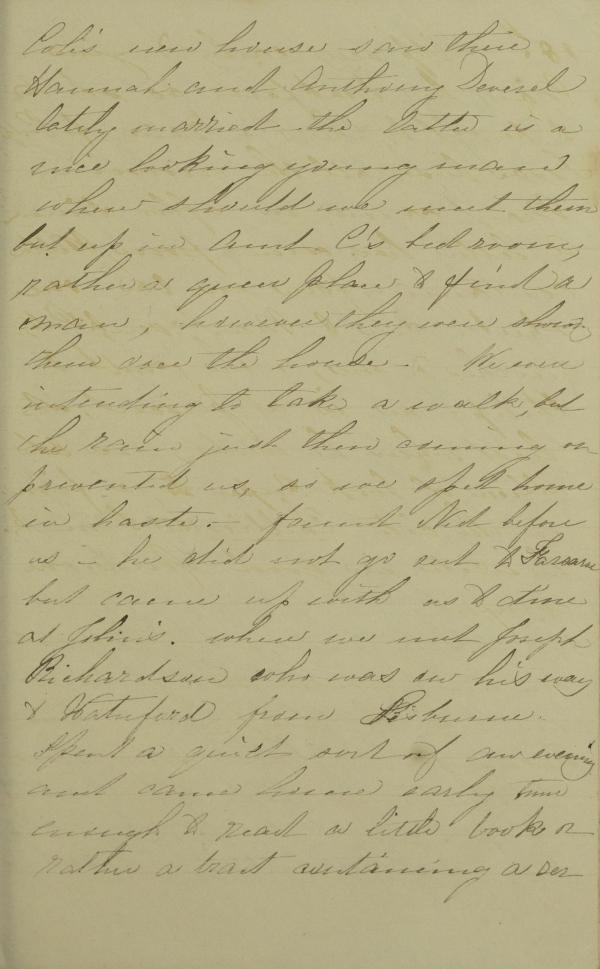 new house saw there
Hannah and Anthony
lately married the latter is a
nice looking young man
where should we meet them
but up in Aunt C's bedroom,
rather a queer place to find a
man, however they were showing
them over the house - We were
intending to take a walk, but
the rain just then coming on
prevented us, so we home
in haste - found Ned before
us - he did not go out to
but came up with us to dine
at John's. where we met Joseph
Richardson who was on his way
to Waterford from Lisburne.
Spent a quiet sort of an evening
and came home early time
enough to read a little book or
rather a tract containing a ser